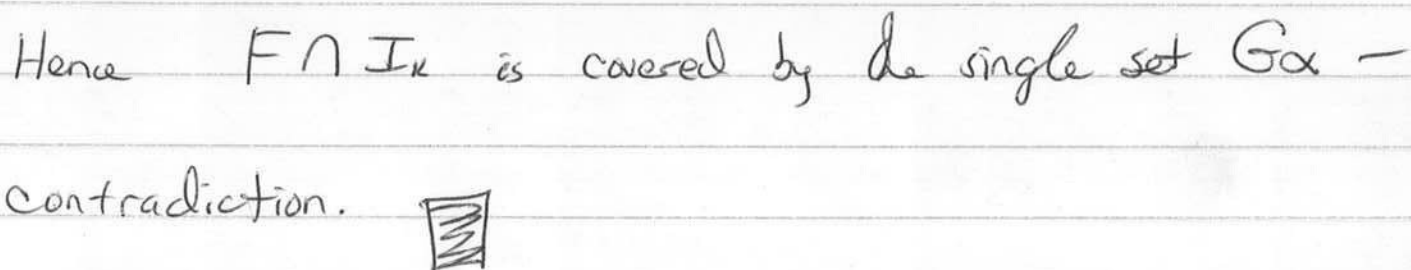 Hence F ∩ Iₖ is covered by the single set Gα –
contradiction.